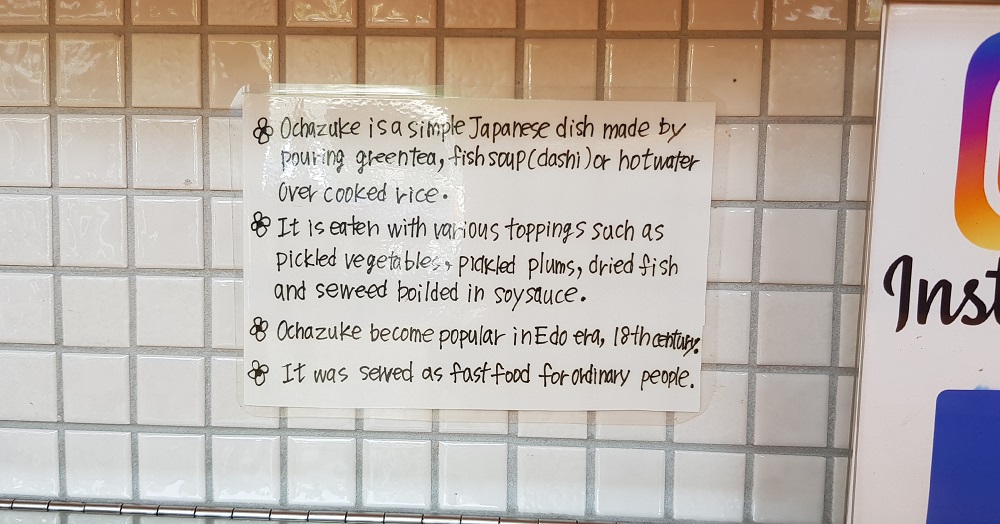 Ochazuke is a simple Japanese dish made by
pouring green tea, fish soup (dashi) or hot water
over cooked rice.
It is eaten with various toppings such as
pickled vegetables, pickled plums, dried fish
and seweed boilded in soysauce.
Ochazuke become popular in Edo era, 18th century.
It was served as fast food for ordinary people.
Inst